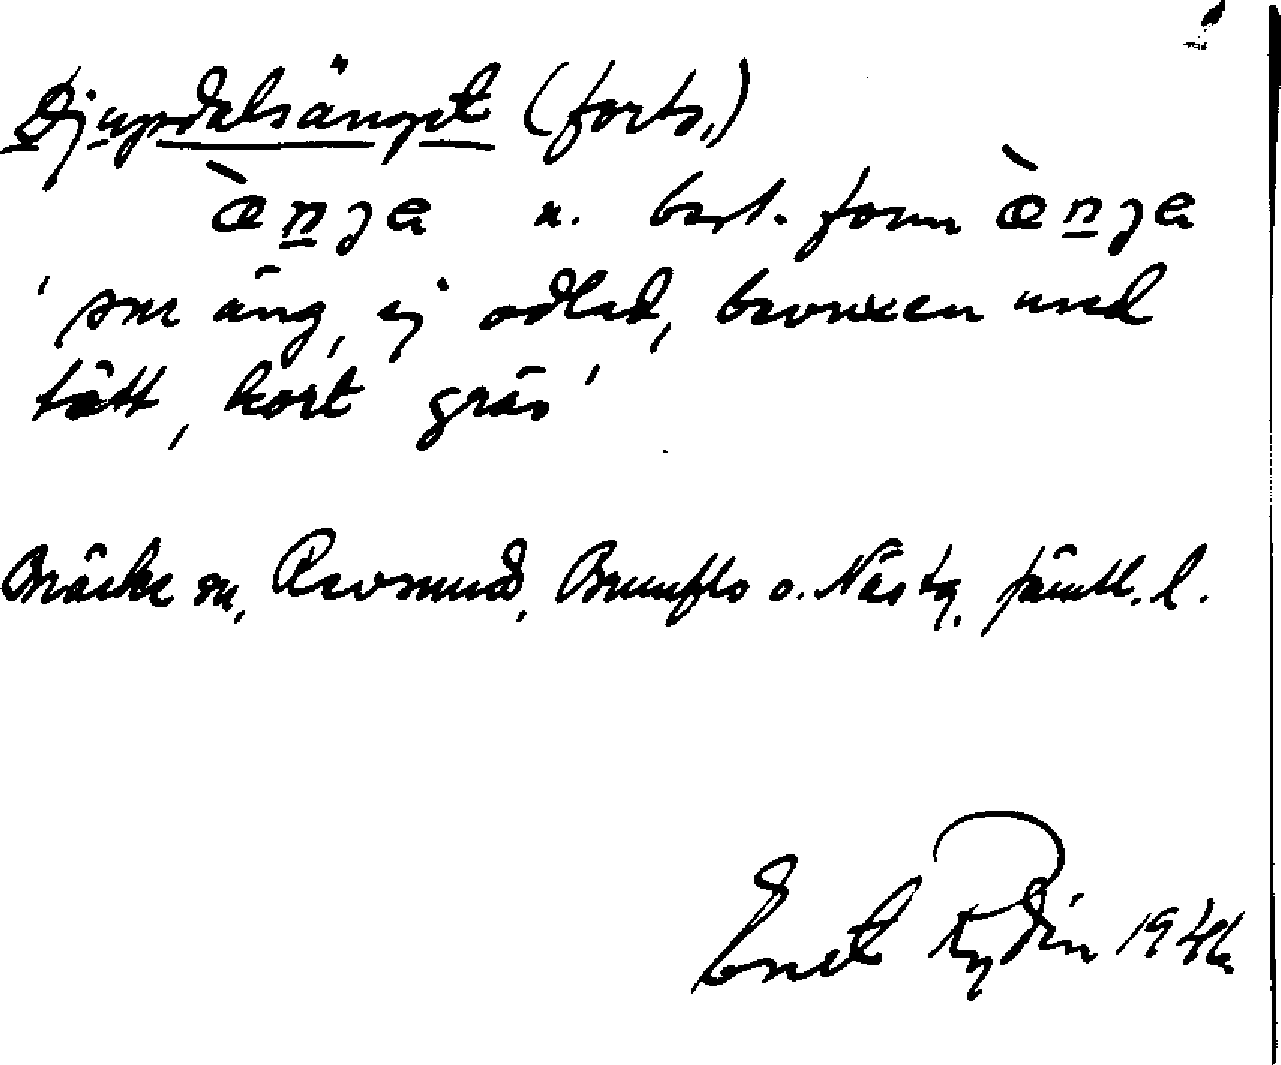 Djupdalsänget (forts.)
ὰ̱nje n. best. form ὰ̱nje
'sur äng, ej odlad, bevuxen med
tätt, kort gräs'
Bräcke sn, Revsund, Brunflo o. Näs tg. Jämtl. l.
Rydin 194